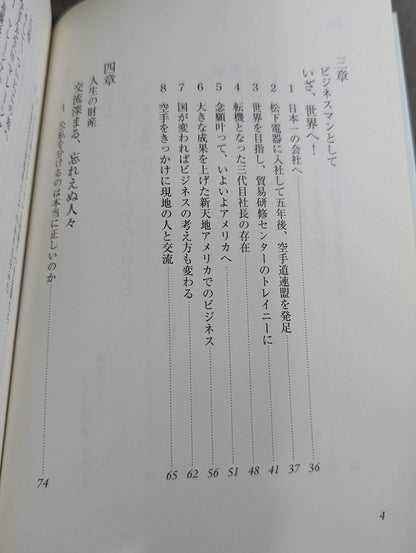 三章
ビジネスマンとして
いざ、世界へ!
1 日本一の会社へ 36
2 松下電器に入社して五年後、空手道連盟を発足 37
3 世界を目指し、貿易研修センターのトレイニーに 41
4 転機となった三代目社長の存在 48
5 念願叶って、いよいよアメリカへ 51
6 大きな成果を上げた新天地アメリカでのビジネス 56
7 国が変わればビジネスの考え方も変わる 62
8 空手をきっかけに現地の人と交流 65
四章
人生の財産
交流深まる、忘れえぬ人々
1 公私を分けるのは本当に正しいのか 74
4